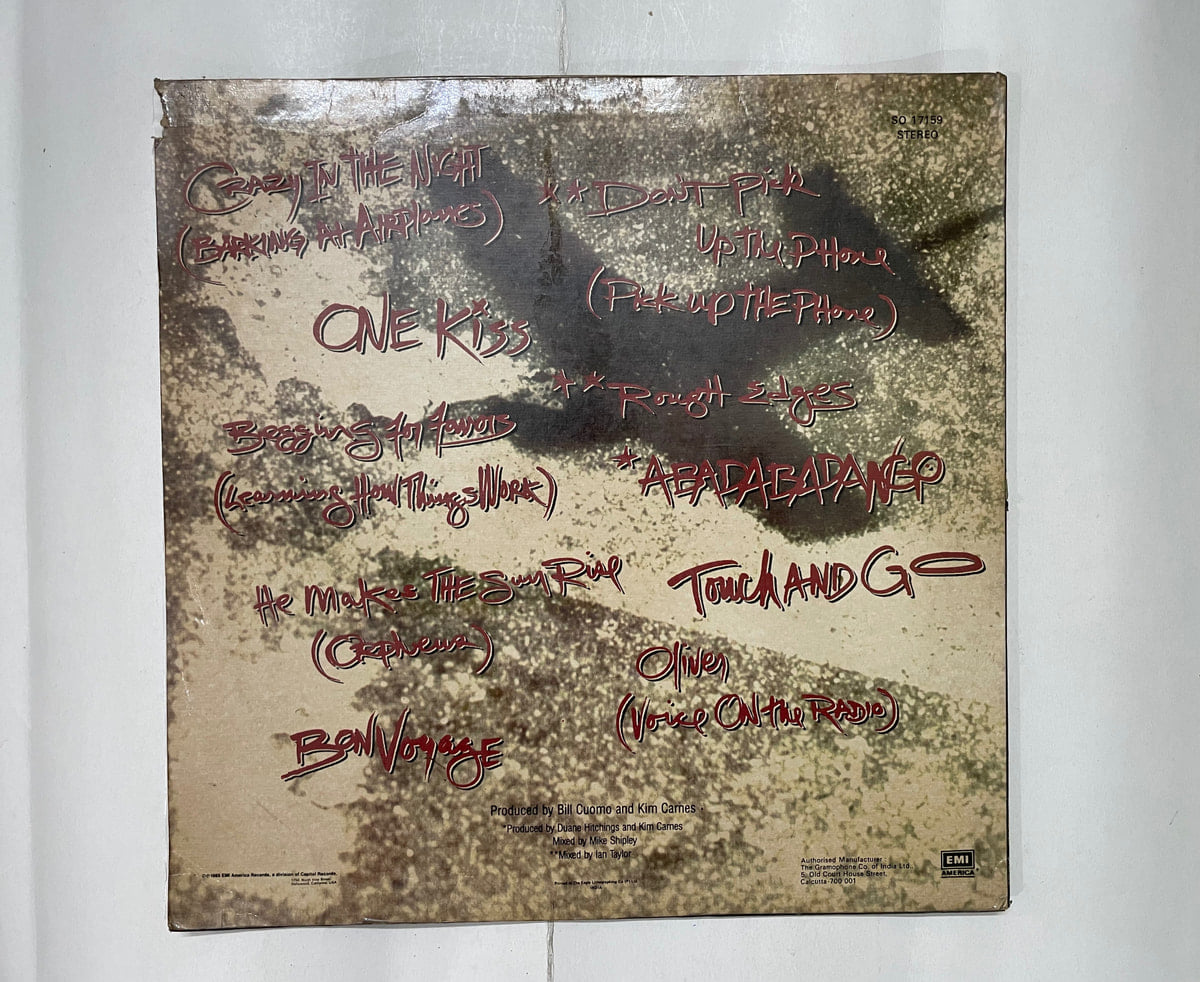 SO 17159
STEREO
CRAZY IN THE NIGHT
(BARKING At AIRPlanes)
ONE Kiss
Begging for favors
(Learning How Things Work)
He Makes THE Sun Rise
(Orpheus)
BON VOYAGE
**Don't Pick
Up The PHone
(Pick up THE PHone)
**Rough Edges
*ABADABADANGO
Touch AND GO
Oliver
(Voice ON the RADIO)
Produced by Bill Cuomo and Kim Carnes
*Produced by Duane Hitchings and Kim Carnes
Mixed by Mike Shipley
**Mixed by Ian Taylor
1985 EMI America Records, a division of Capitol Records,
Hollywood, California, USA
Authorised Manufacturer :
The Gramophone Co. of India Ltd.,
5, Old Court House Street,
Calcutta-700 001
EMI
AMERICA